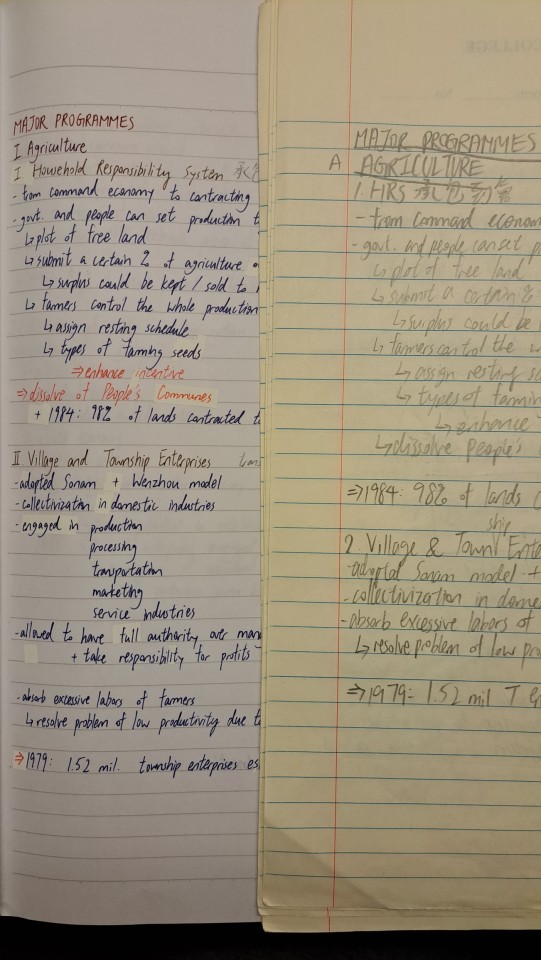 MAJOR PROGRAMMES
I Agriculture
I Household Responsibility System 承包
- from command economy to contracting
- govt. and people can set production t
↳ plot of free land
↳ submit a certain % of agriculture
↳ surplus could be kept / sold to
↳ farmers control the whole production
↳ assign resting schedule
↳ types of farming seeds
⇒ enhance incentive
⇒ dissolve of People's Communes
+ 1984: 98% of lands contracted t
II Village and Township Enterprises
- adopted Sonam + Wenzhou model
- collectivization in domestic industries
- engaged in production
processing
transportation
marketing
service industries
- allowed to have full authority over man
+ take responsibility for profits
- absorb excessive labors of farmers
↳ resolve problem of low productivity due t
⇒ 1979: 1.52 mil. township enterprises es
COLLEGE
No.
MAJOR PROGRAMMES
A AGRICULTURE
1. HRS 承包到
- from command econom
- govt. and people can set p
↳ plot of free land
↳ submit a certain %
↳ surplus could be
↳ farmers control the w
↳ assign resting sc
↳ types of farmin
↳ enhance
↳ dissolve people's
⇒ 1984: 98% of lands c
ship
2. Village & Town Ente
- adopted Sonam model +
- collectivization in dome
- absorb excessive labors of
↳ resolve problem of low pro
⇒ 1979: 1.52 mil T En